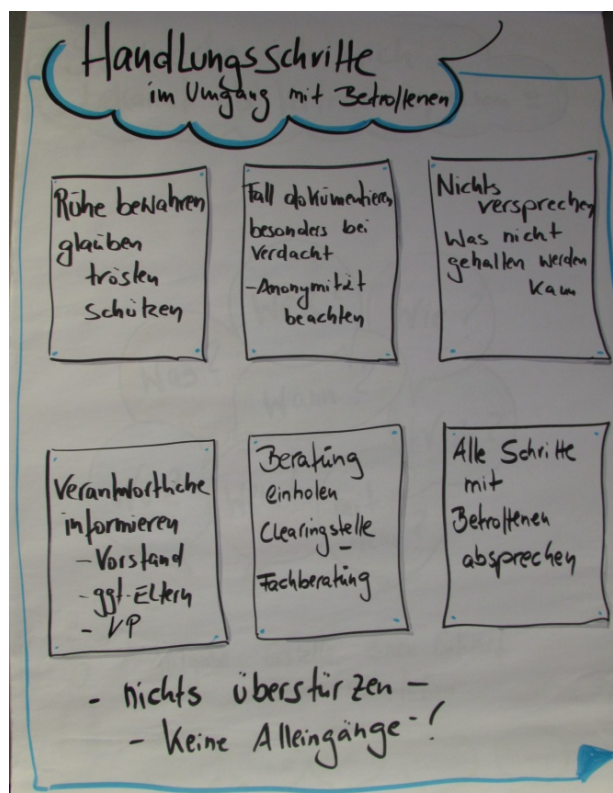 Handlungsschritte
im Umgang mit Betroffenen
Ruhe bewahren
glauben
trösten
schützen
Fall dokumentieren
besonders bei
Verdacht
- Anonymität
beachten
Nichts
versprechen
Was nicht
gehalten werden
kann
Verantwortliche
informieren
- Vorstand
- ggf. Eltern
- VP
Beratung
einholen
Clearingstelle
-
Fachberatung
Alle Schritte
mit
Betroffenen
absprechen
- nichts überstürzen -
- Keine Alleingänge - !